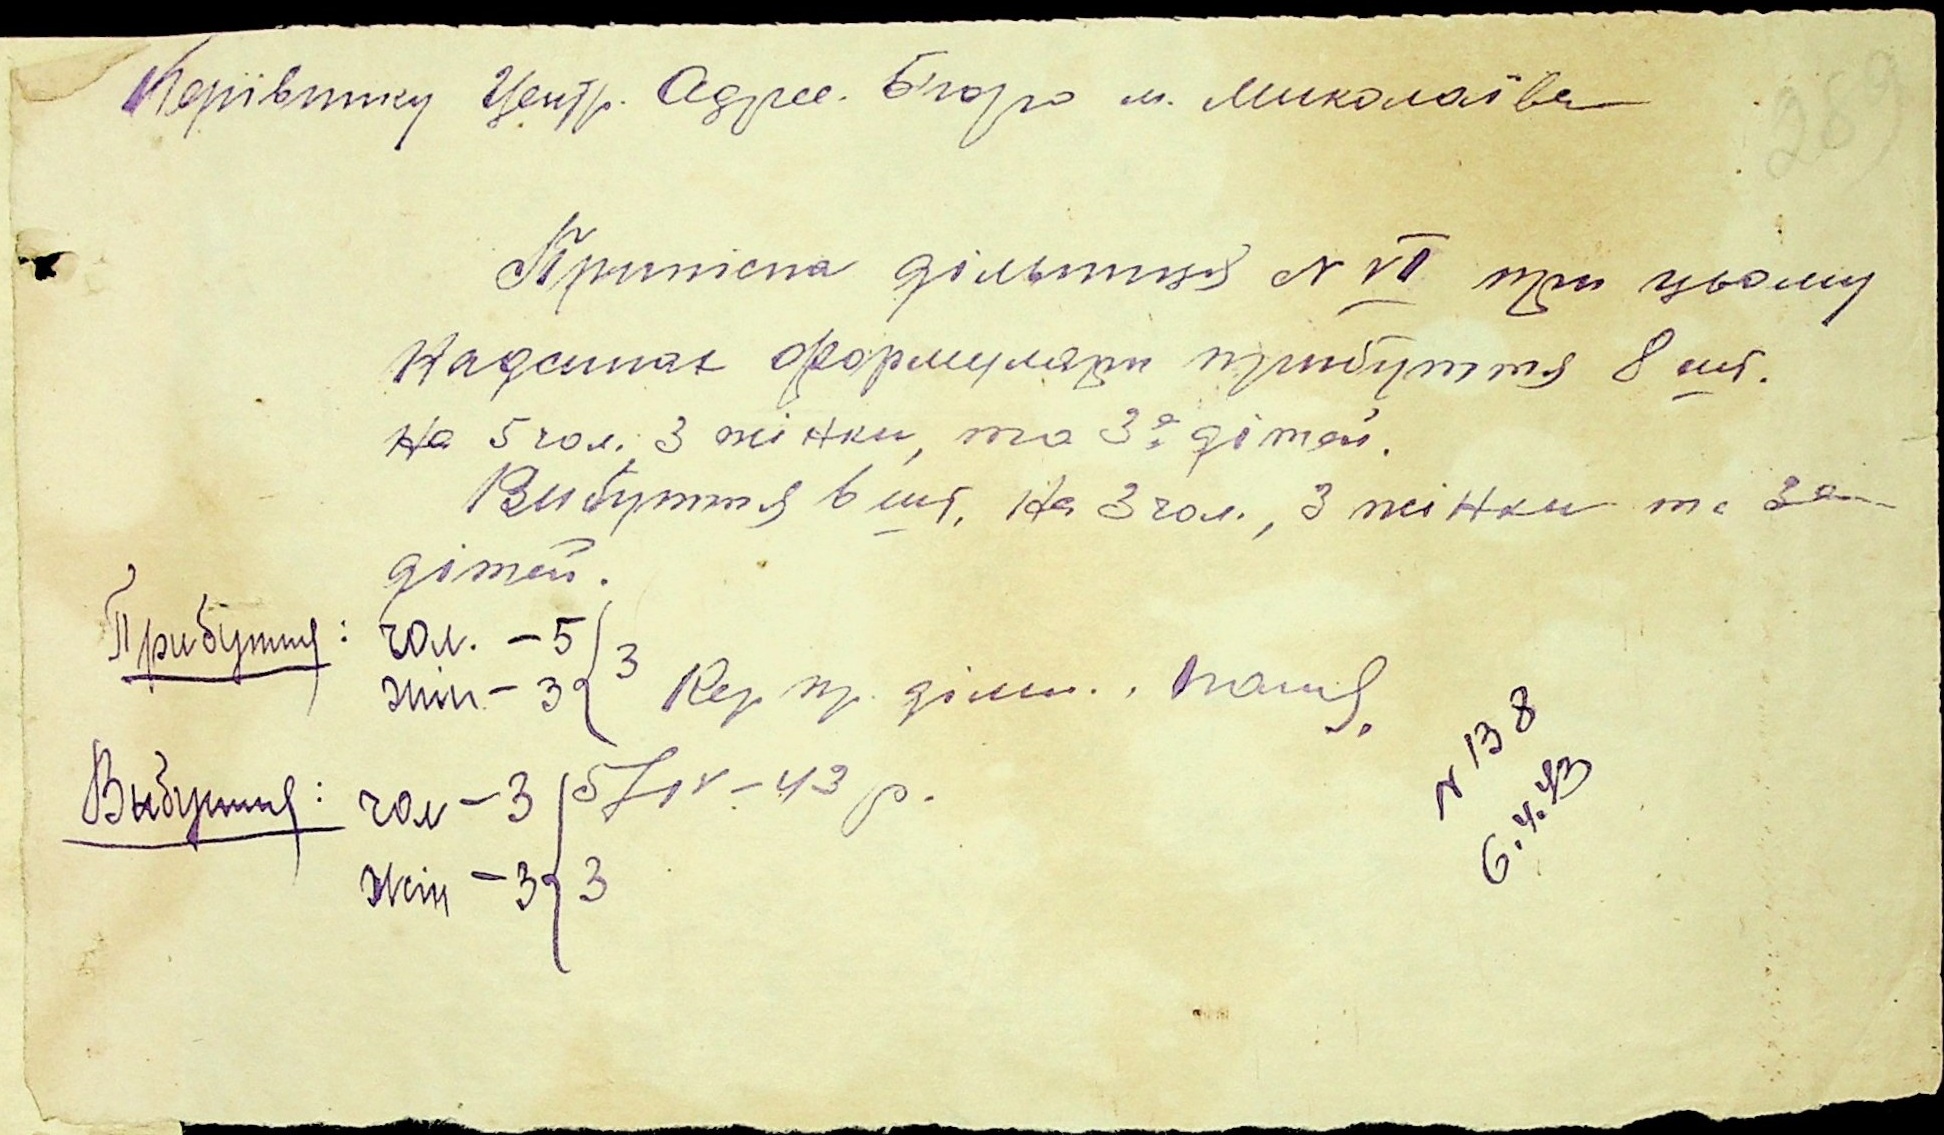 Керівнику Центр. Адрес. Бюро м. Миколаїва
289
Приписна дільниця N VII при цьому
надсилає формуляри прибуття 8 шт.
на 5 чол., 3 жінки, та 3-є дітей.
Вибуття 6 шт. на 3 чол., 3 жінки та 3є
дітей.
Прибуття: чол. - 5
жін - 3 } 3
Кер пр. дільн.
Вибуття: чол - 3
жін - 3 } 3
5/IV - 43 р.
N 138
6.4.43